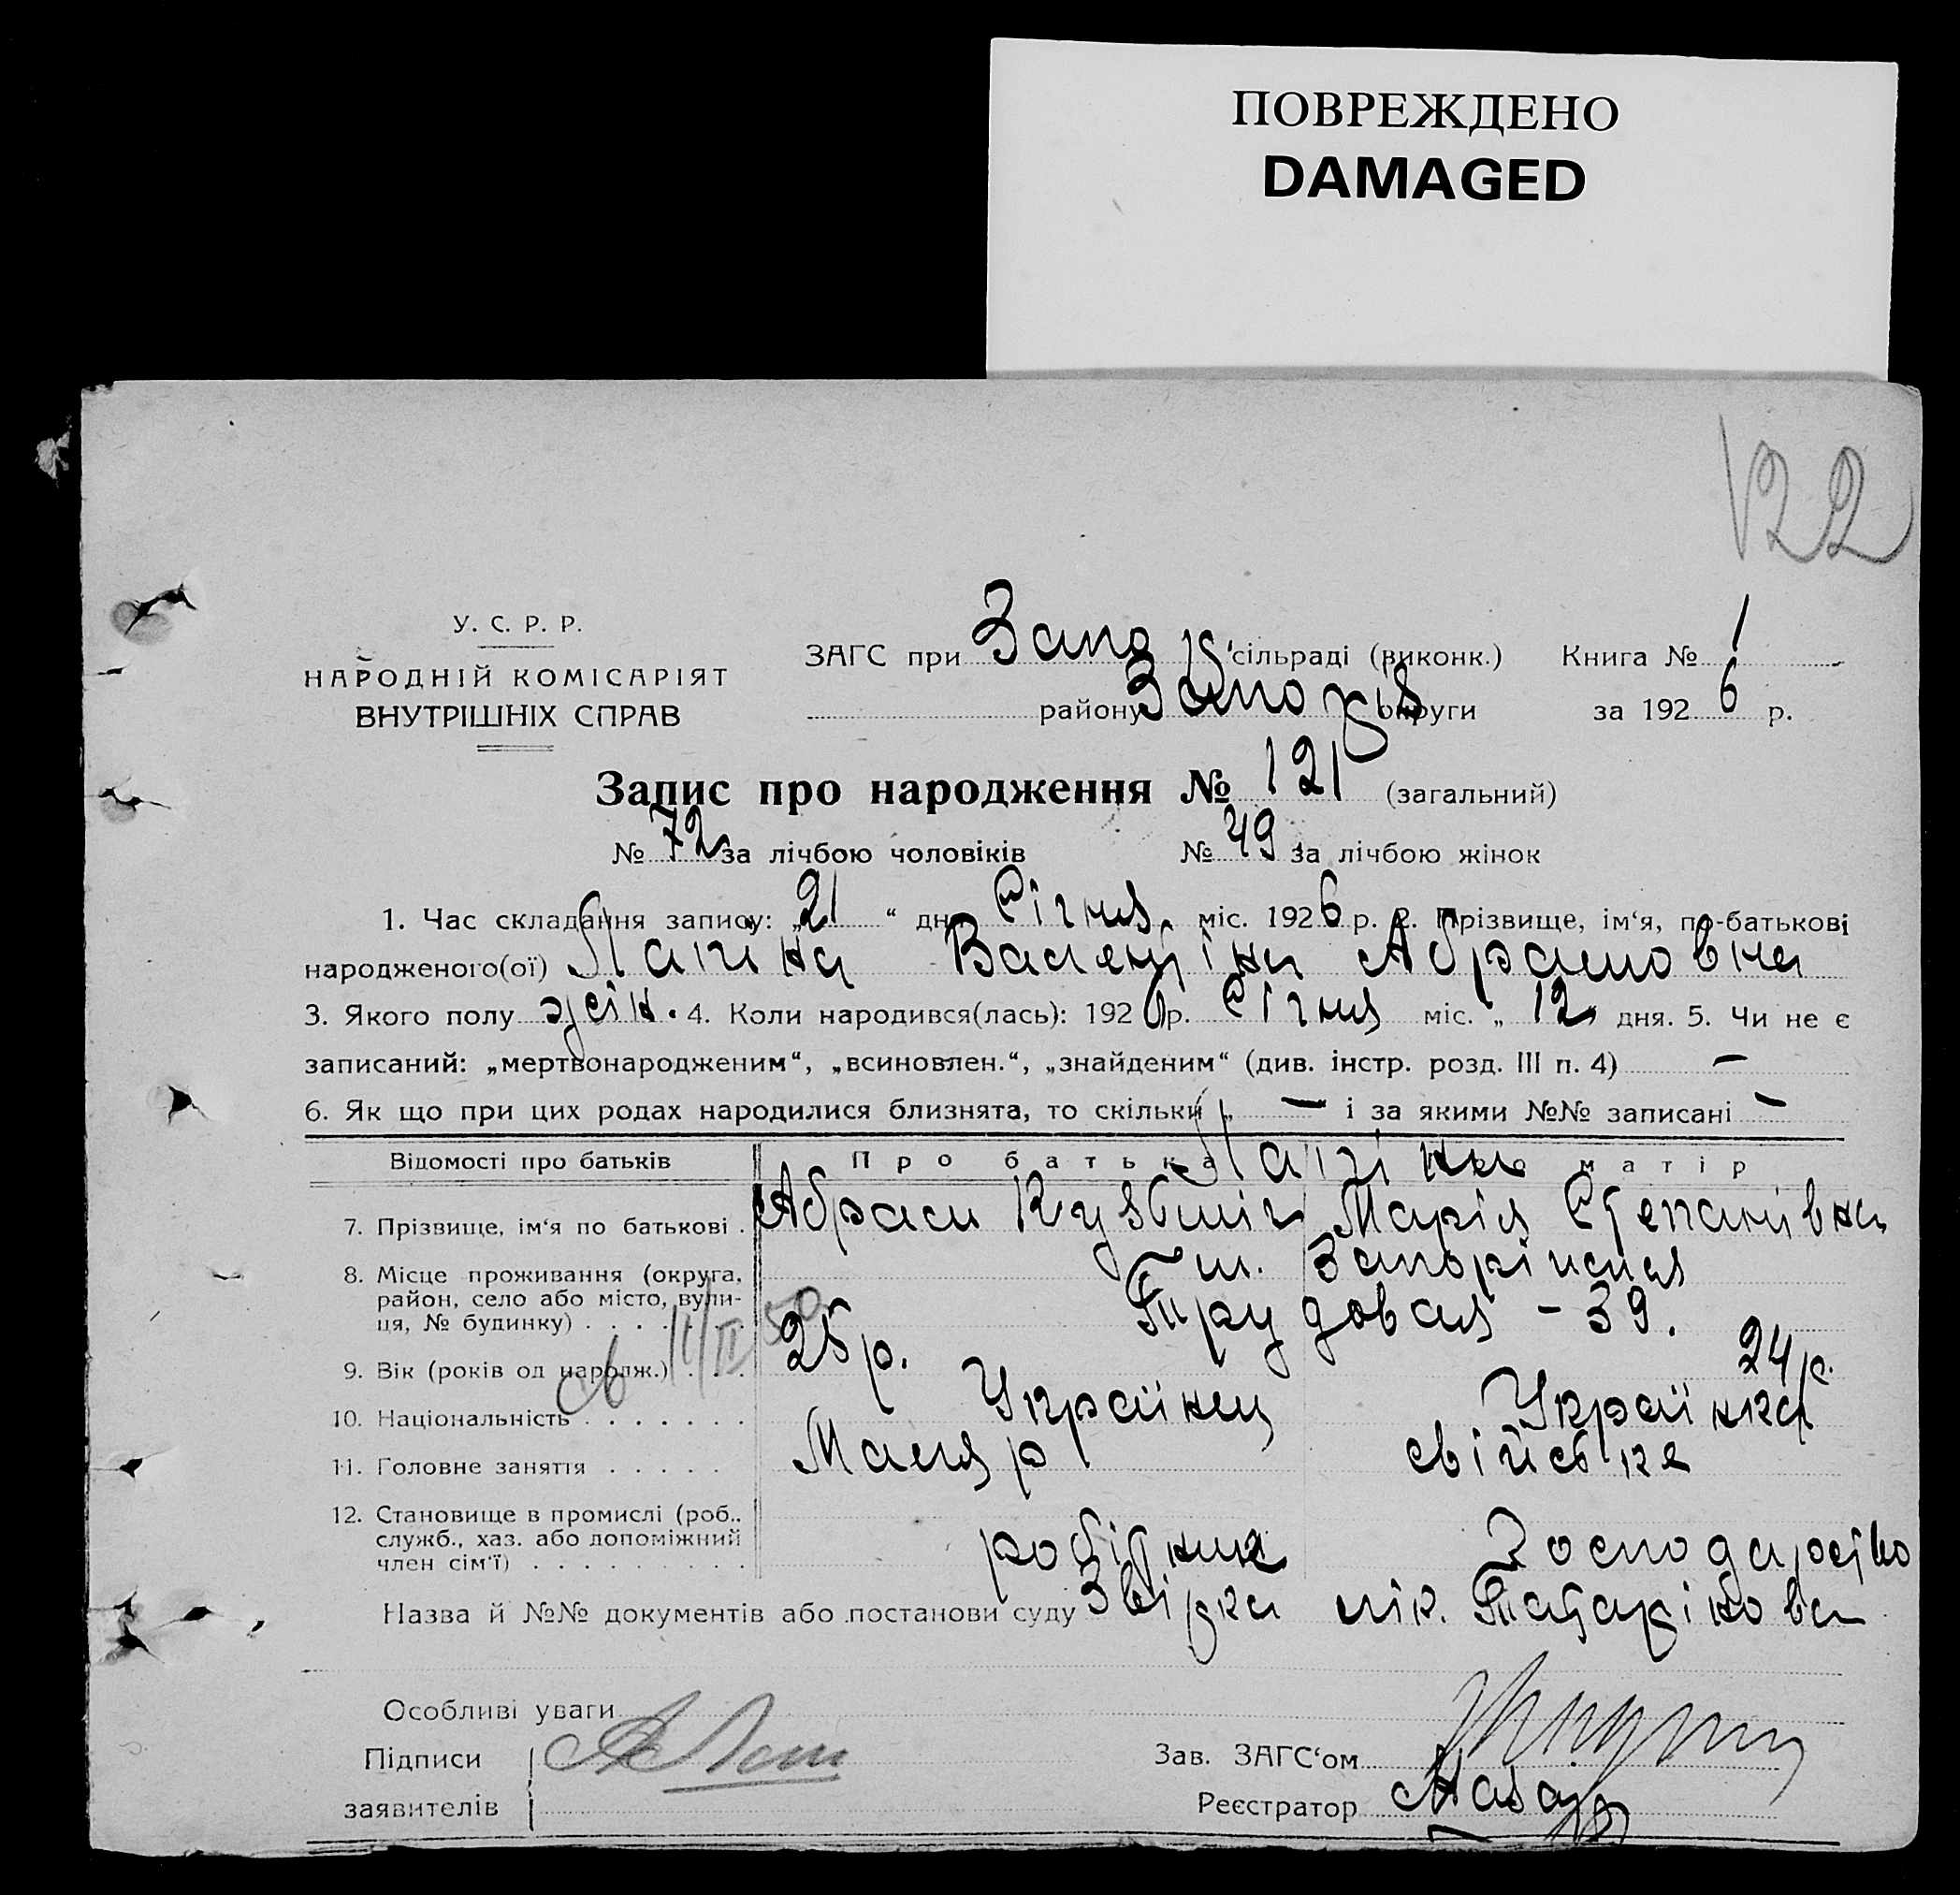 ПОВРЕЖДЕНО
DAMAGED
122
У. С. Р. Р.
НАРОДНІЙ КОМІСАРІЯТ
ВНУТРІШНІХ СПРАВ
ЗАГС при Запо сільраді (виконк.) Книга № 1
району Запоріз округи за 192 6 р.
Запис про народження № 121 (загальний)
№ 72 за лічбою чоловіків № 49 за лічбою жінок
1. Час складання запису: „ 21 “ дн Січня міс. 192 6 р. 2. Прізвище, ім‘я, по-батькові
народженого(ої) Валентіна Абрамовна
3. Якого полу жін. 4. Коли народився(лась): 192 6 р. Січня міс. „ 12 дня. 5. Чи не є
записаний: „мертвонародженим“, „всиновлен.“, „знайденим“ (див. інстр. розд. III п. 4) —
6. Як що при цих родах народилися близнята, то скільки „ — і за якими №№ записані —
Відомості про батьків Про батька матір
7. Прізвище, ім‘я по батькові . Абрам Кузьміч Марія Степанівна
8. Місце проживання (округа, район, село або місто, вули-ця, № будинку) . . . . . . . м. Запоріжжя
Трудовая - 39.
9. Вік (років од народж.) . . . 25 р. 24 р.
10. Національність . . . . . . . Українец Українка
11. Головне заняття . . . . . Маляр свійське
12. Становище в промислі (роб.. служб., хаз. або допоміжний член сім‘ї) . . . . . . . . . робітник Господарство
Назва й №№ документів або постанови суду лік.
Особливі уваги
Підписи
заявителів
Зав. ЗАГС‘ом
Реєстратор